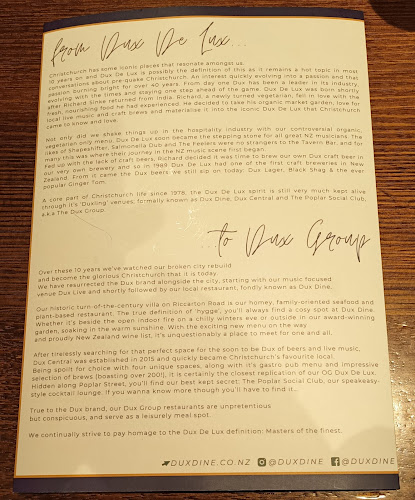 from Dux De Lux...
Christchurch has some iconic places that resonate amongst us.
10 years on and Dux De Lux is possibly the definition of this as it remains a hot topic in most
conversations about pre-quake Christchurch. An interest quickly evolving into a passion and that
passion burning bright for over 40 years. From day one Dux has been a leader in its industry,
evolving with the times and staying one step ahead of the game. Dux De Lux was born shortly
after Richard Sinke returned from India. Richard, a newly turned vegetarian, fell in love with the
fresh, nourishing food he had experienced. He decided to take his organic market garden, love for
local live music and craft brews and materialise it into the iconic Dux De Lux that Christchurch
came to know and love.
Not only did we shake things up in the hospitality industry with our controversial organic,
vegetarian only menu; Dux De Lux soon became the stepping stone for all great NZ musicians. The
likes of Shapeshifter, Salmonella Dub and The Feelers were no strangers to the Tavern Bar, and for
many this was where their journey in the NZ music scene first began.
Fed up with the lack of craft beers, Richard decided it was time to brew our own. Dux craft beer in
our very own brewery and so in 1989 Dux De Lux had one of the first craft breweries in New
Zealand. From it came the Dux beers we still sip on today: Dux Lager, Black Shag & the ever
popular Ginger Tom.
A core part of Christchurch life since 1978, the Dux De Lux spirit is still very much kept alive
through its 'Duxling' venues; formally known as Dux Dine, Dux Central and The Poplar Social Club,
a.k.a The Dux Group.
...to Dux Group
Over these 10 years we've watched our broken city rebuild
and become the glorious Christchurch that it is today.
We have resurrected the Dux brand alongside the city, starting with our music focused
venue Dux Live and shortly followed by our local restaurant, fondly known as Dux Dine.
Our historic turn-of-the-century villa on Riccarton Road is our homey, family-oriented seafood and
plant-based restaurant. The true definition of 'hygge', you'll always find a cosy spot at Dux Dine.
Whether it's beside the open indoor fire on a chilly winters eve or outside in our award-winning
garden, soaking in the warm sunshine. With the exciting new menu on the way
and proudly New Zealand wine list, it's unquestionably a place to meet for one and all.
After tirelessly searching for that perfect space for the soon to be Dux of beers and live music,
Dux Central was established in 2015 and quickly became Christchurch's favourite local.
Being spoilt for choice with four unique spaces, along with it's gastro pub menu and impressive
selection of brews (boasting over 200!), it is certainly the closest replication of our OG Dux De Lux.
Hidden along Poplar Street, you'll find our best kept secret; The Poplar Social Club, our speakeasy-
style cocktail lounge. If you wanna know more though you'll have to find it...
True to the Dux brand, our Dux Group restaurants are unpretentious
but conspicuous, and serve as a leisurely meal spot.
We continually strive to pay homage to the Dux De Lux definition: Masters of the finest.
DUXDINE.CO.NZ @DUXDINE @DUXDINE